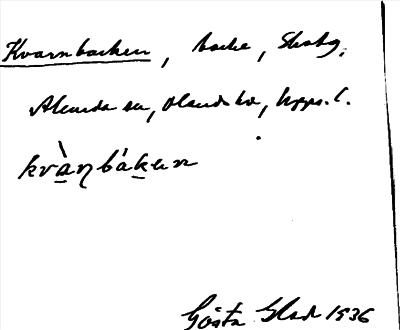 Kvarnbacken, backe, Skoby,
Alunda sn, Olands hd, Upps. l.
kvà̱ɳbáḵen
Gösta Glad 1936